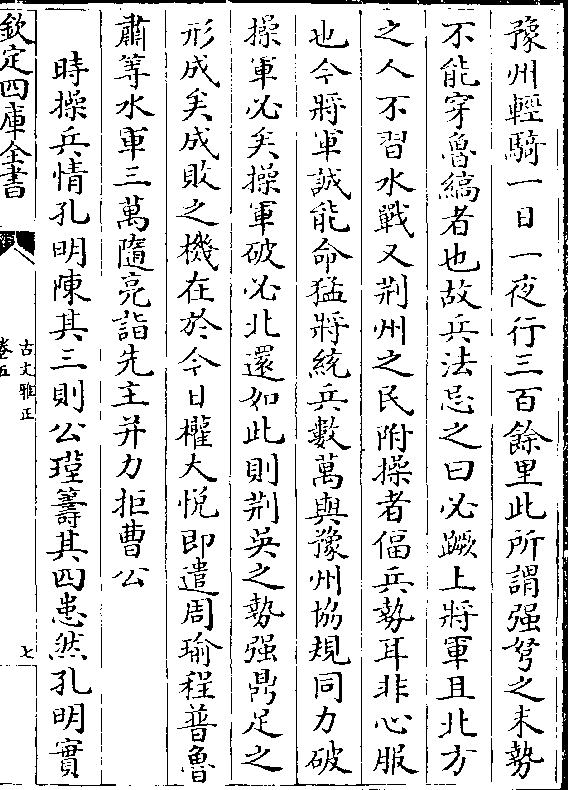 豫州輕騎一日一夜行三百餘里此所謂强弩之末勢
不能穿魯縞者也故兵法忌之曰必蹶上將軍且北方
之人不習水戰又荆州之民附操者偪兵勢耳非心服
也今將軍誠能命猛將統兵數萬與豫州協規同力破
操軍必矣操軍破必北還如此則荆英之勢强鼎足之
形成矣成敗之機在於今日權大悦即遣周瑜程普魯
肅等水軍三萬隨亮詣先主并力拒曹公
時操兵情孔明陳其三則公瑾籌其四患然孔明實
欽定四庫全書
古文雅正
卷五
七